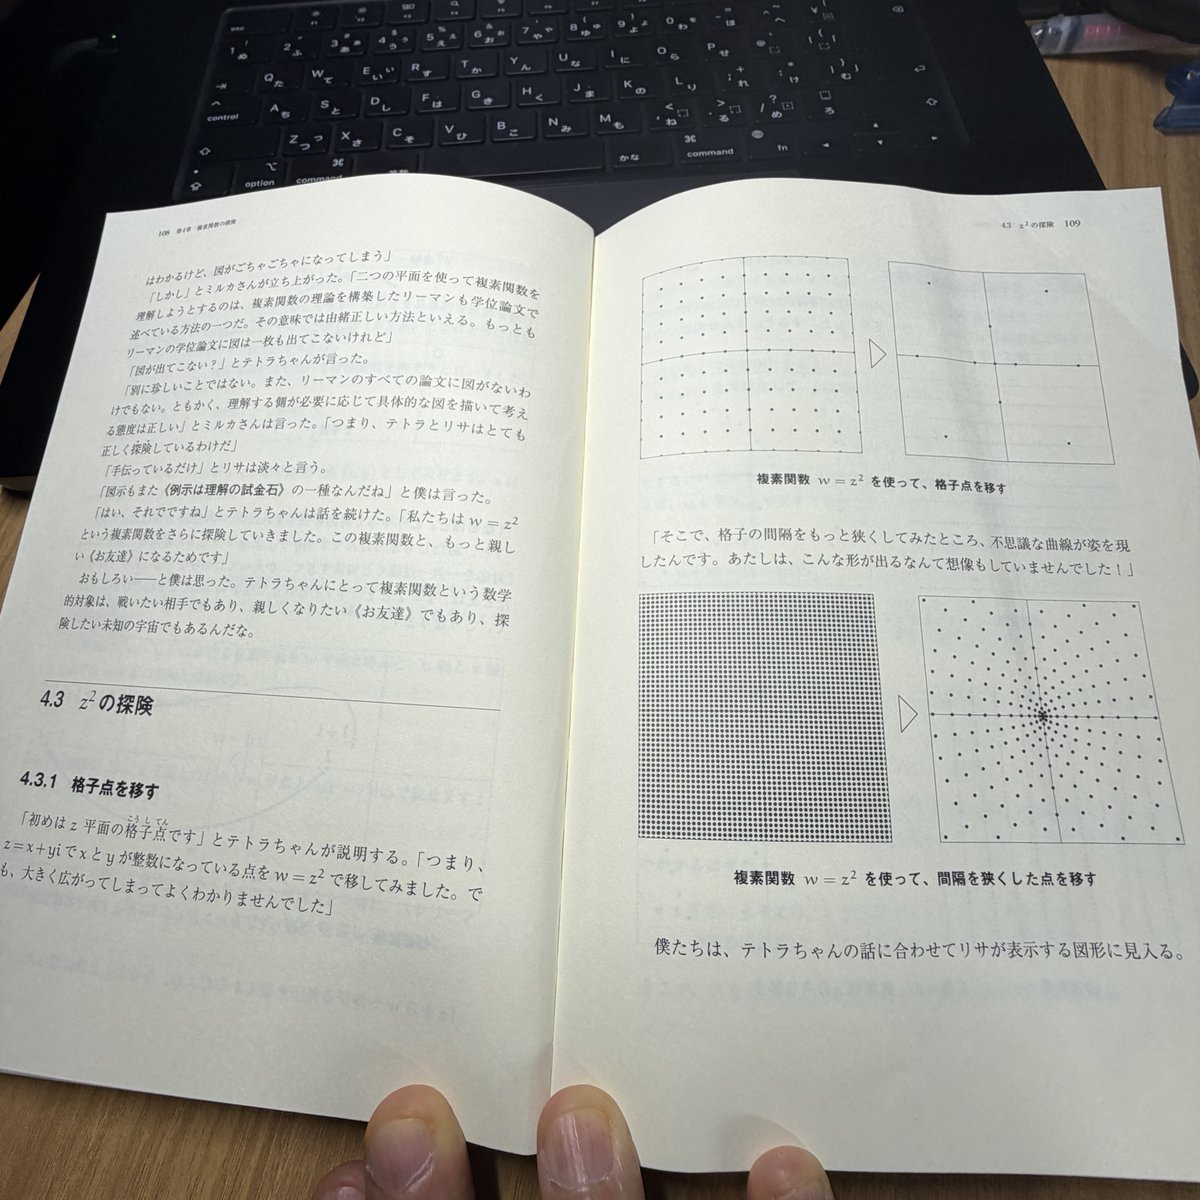 esc
control
option
command
かな
command
fn
108 第4章 複素関数の探険
はわかるけど、図がごちゃごちゃになってしまう」
「しかし」とミルカさんが立ち上がった。「二つの平面を使って複素関数を
理解しようとするのは、複素関数の理論を構築したリーマンも学位論文で
述べている方法の一つだ。その意味では由緒正しい方法といえる。もっとも
リーマンの学位論文に図は一枚も出てこないけれど」
「図が出てこない？」とテトラちゃんが言った。
「別に珍しいことではない。また、リーマンのすべての論文に図がないわ
けでもない。ともかく、理解する側が必要に応じて具体的な図を描いて考え
る態度は正しい」とミルカさんは言った。「つまり、テトラとリサはとても
正しく探険しているわけだ」
「手伝っているだけ」とリサは淡々と言う。
「図示もまた《例示は理解の試金石》の一種なんだね」と僕は言った。
「はい、それでですね」とテトラちゃんは話を続けた。「私たちは w = z²
という複素関数をさらに探険していきました。この複素関数と、もっと親し
い《お友達》になるためです」
おもしろい——と僕は思った。テトラちゃんにとって複素関数という数学
的対象は、戦いたい相手でもあり、親しくなりたい《お友達》でもあり、探
険したい未知の宇宙でもあるんだな。
4.3 z²の探険
4.3.1 格子点を移す
「初めは z 平面の格子点です」とテトラちゃんが説明する。「つまり、
こうしてん
z=x+yi で x と y が整数になっている点を w = z² で移してみました。で
も、大きく広がってしまってよくわかりませんでした」
4.3 z²の探険 109
複素関数 w = z² を使って、格子点を移す
「そこで、格子の間隔をもっと狭くしてみたところ、不思議な曲線が姿を現
したんです。あたしは、こんな形が出るなんて想像もしていませんでした！」
複素関数 w = z² を使って、間隔を狭くした点を移す
僕たちは、テトラちゃんの話に合わせてリサが表示する図形に見入る。